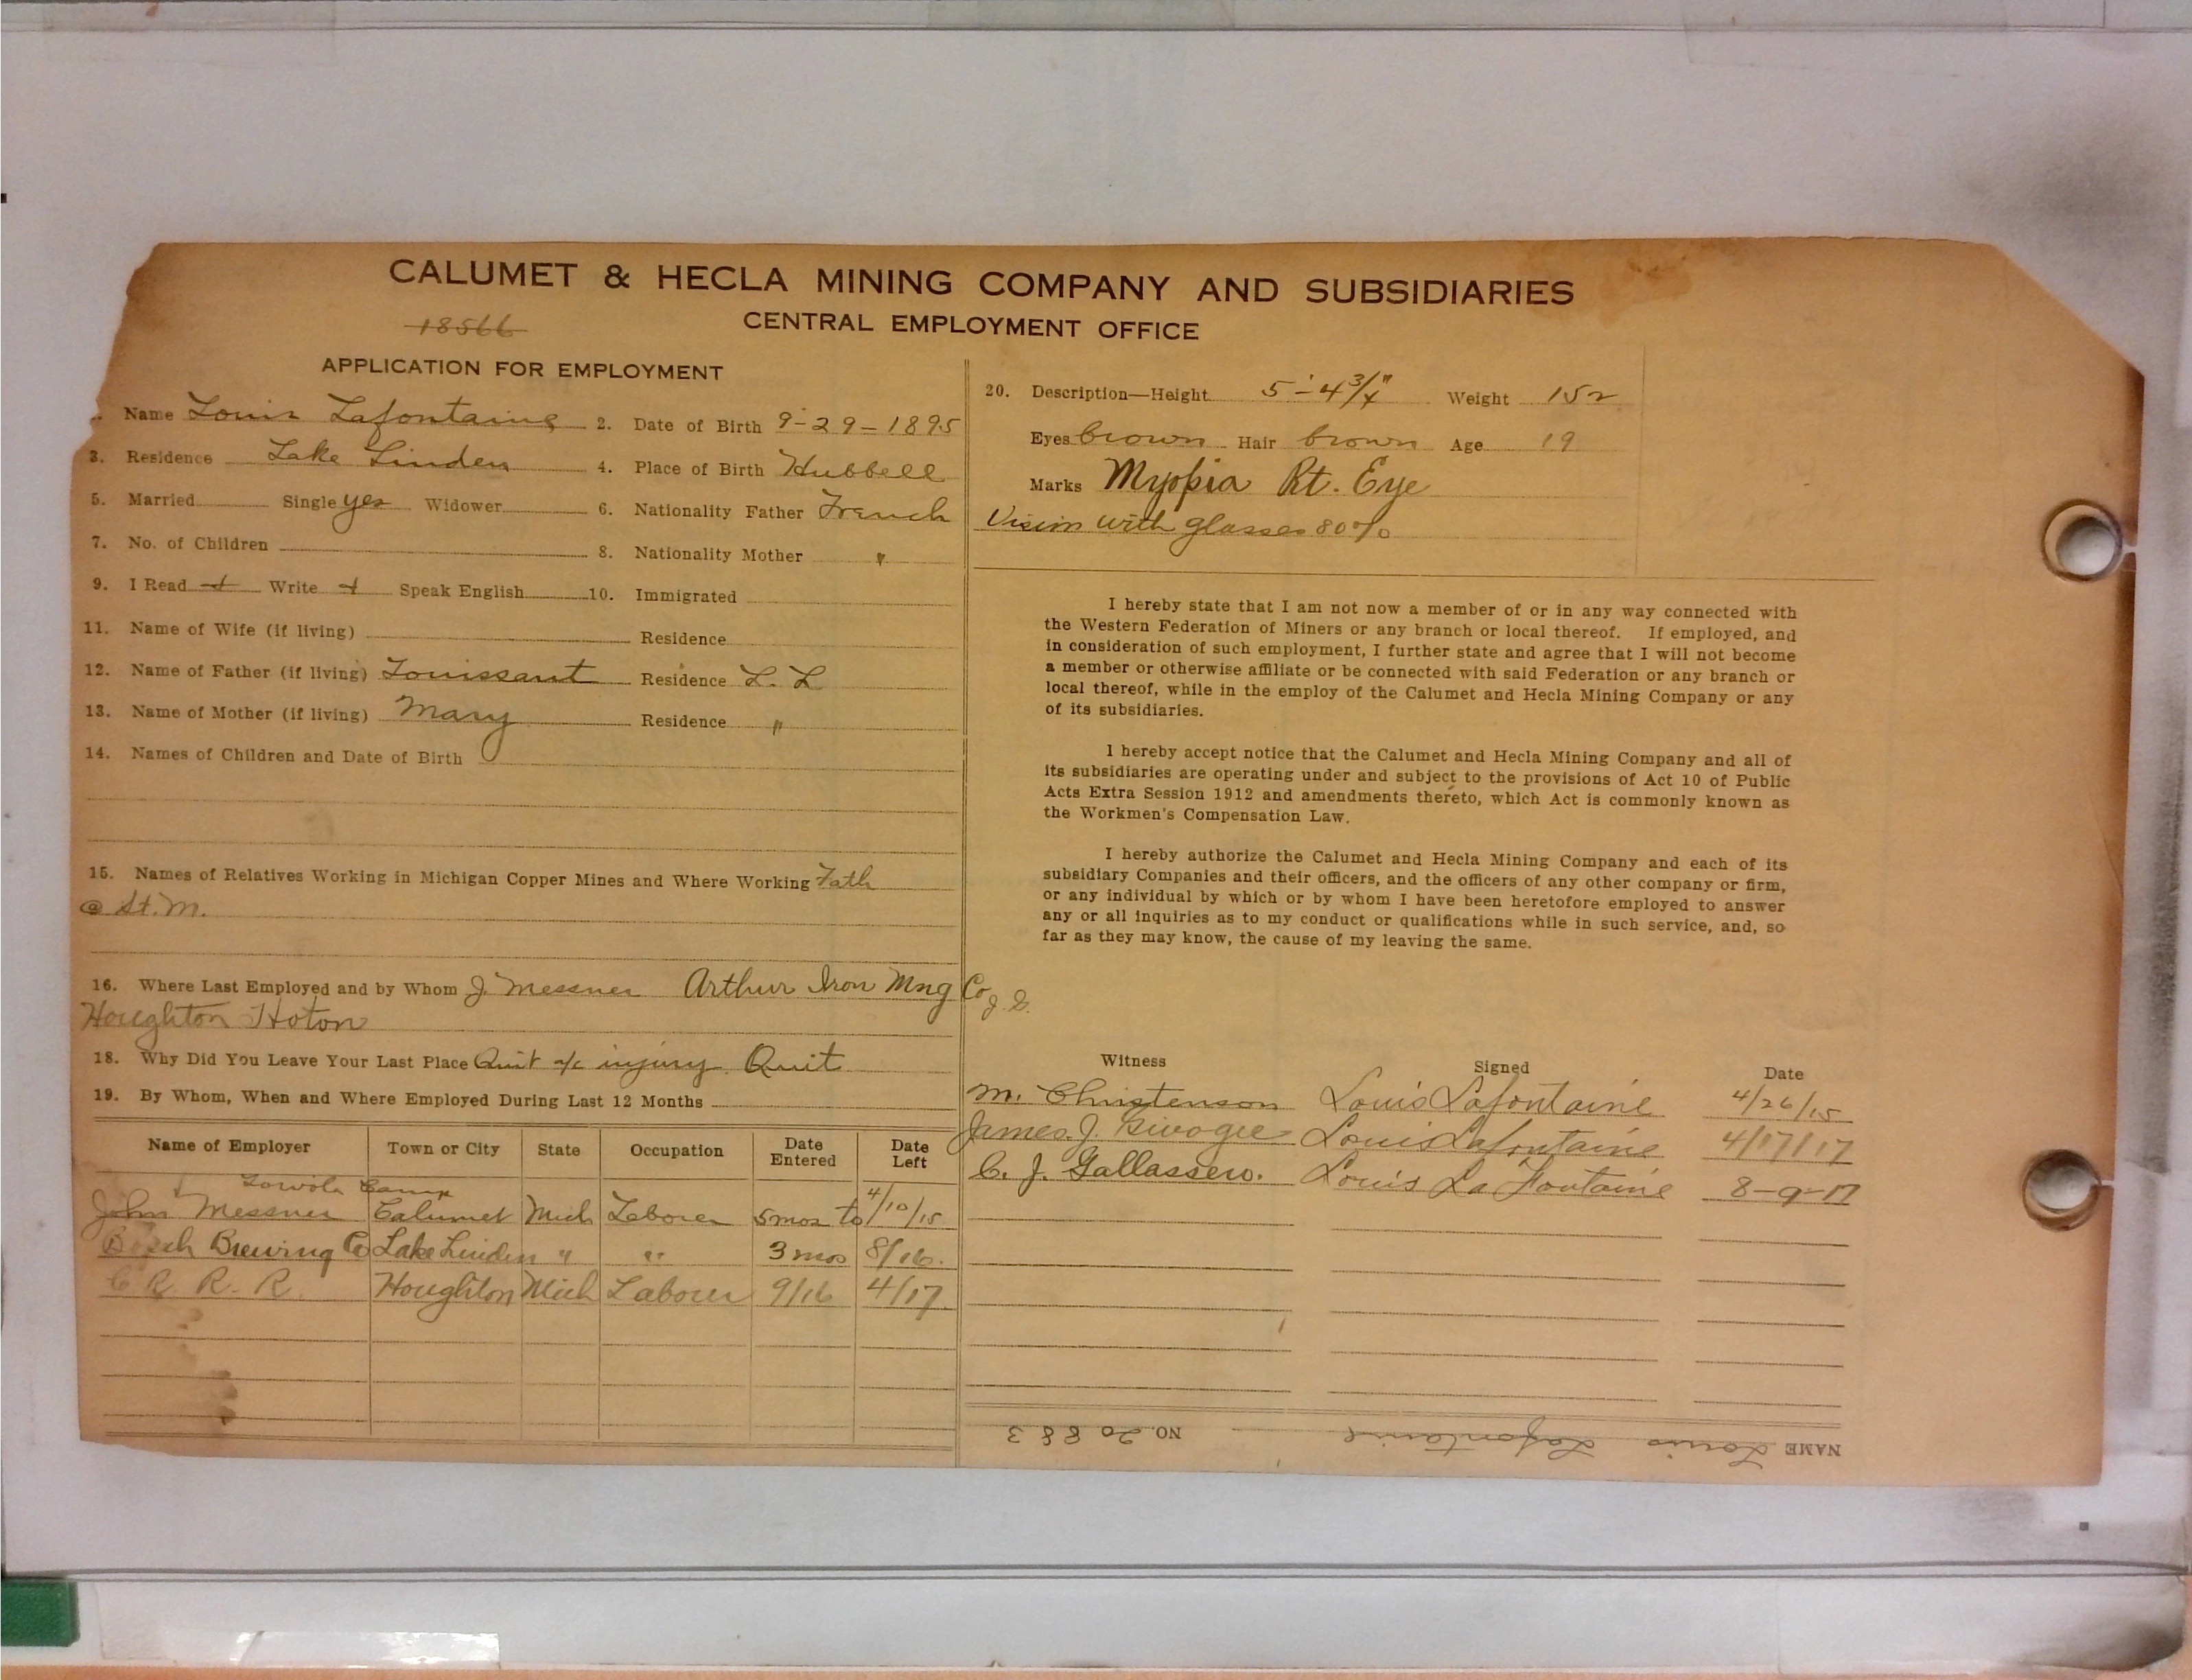 CALUMET & HECLA MINING COMPANY AND SUBSIDIARIES
18566
CENTRAL EMPLOYMENT OFFICE
APPLICATION FOR EMPLOYMENT
Name Louis Lafontaine 2. Date of Birth 9-29-1895
3. Residence Lake Linden 4. Place of Birth Hubbell
5. Married Single yes Widower 6. Nationality Father French
7. No. of Children 8. Nationality Mother "
9. I Read Write Speak English 10. Immigrated
11. Name of Wife (if living) Residence
12. Name of Father (if living) Touissant Residence L. L
13. Name of Mother (if living) Mary Residence "
14. Names of Children and Date of Birth
15. Names of Relatives Working in Michigan Copper Mines and Where Working Fath
@ St. M.
16. Where Last Employed and by Whom J. Messner Arthur Iron Mng Co
Houghton Hoton
18. Why Did You Leave Your Last Place Quit a/c injury. Quit
19. By Whom, When and Where Employed During Last 12 Months
Name of Employer Town or City State Occupation Date Entered Date Left
Camp
John Messner Calumet Mich Laborer 5 mos to 4/10/15
Bosch Brewing Co Lake Linden " " 3 mos 8/16.
C R. R. R. Houghton Mich Laborer 9/16 4/17
20. Description—Height 5'-4 3/4" Weight 152
Eyes brown Hair brown Age 19
Marks Myopia Rt. Eye
Vision with glasses 80%
I hereby state that I am not now a member of or in any way connected with
the Western Federation of Miners or any branch or local thereof. If employed, and
in consideration of such employment, I further state and agree that I will not become
a member or otherwise affiliate or be connected with said Federation or any branch or
local thereof, while in the employ of the Calumet and Hecla Mining Company or any
of its subsidiaries.
I hereby accept notice that the Calumet and Hecla Mining Company and all of
its subsidiaries are operating under and subject to the provisions of Act 10 of Public
Acts Extra Session 1912 and amendments thereto, which Act is commonly known as
the Workmen's Compensation Law.
I hereby authorize the Calumet and Hecla Mining Company and each of its
subsidiary Companies and their officers, and the officers of any other company or firm,
or any individual by which or by whom I have been heretofore employed to answer
any or all inquiries as to my conduct or qualifications while in such service, and, so
far as they may know, the cause of my leaving the same.
Witness Signed Date
M. Christenson Louis Lafontaine 4/26/15
James J. Louis Lafontaine 4/17/17
C. J. Gallassero. Louis La Fontaine 8-9-17
NAME Louis Lafontaine NO. 20883